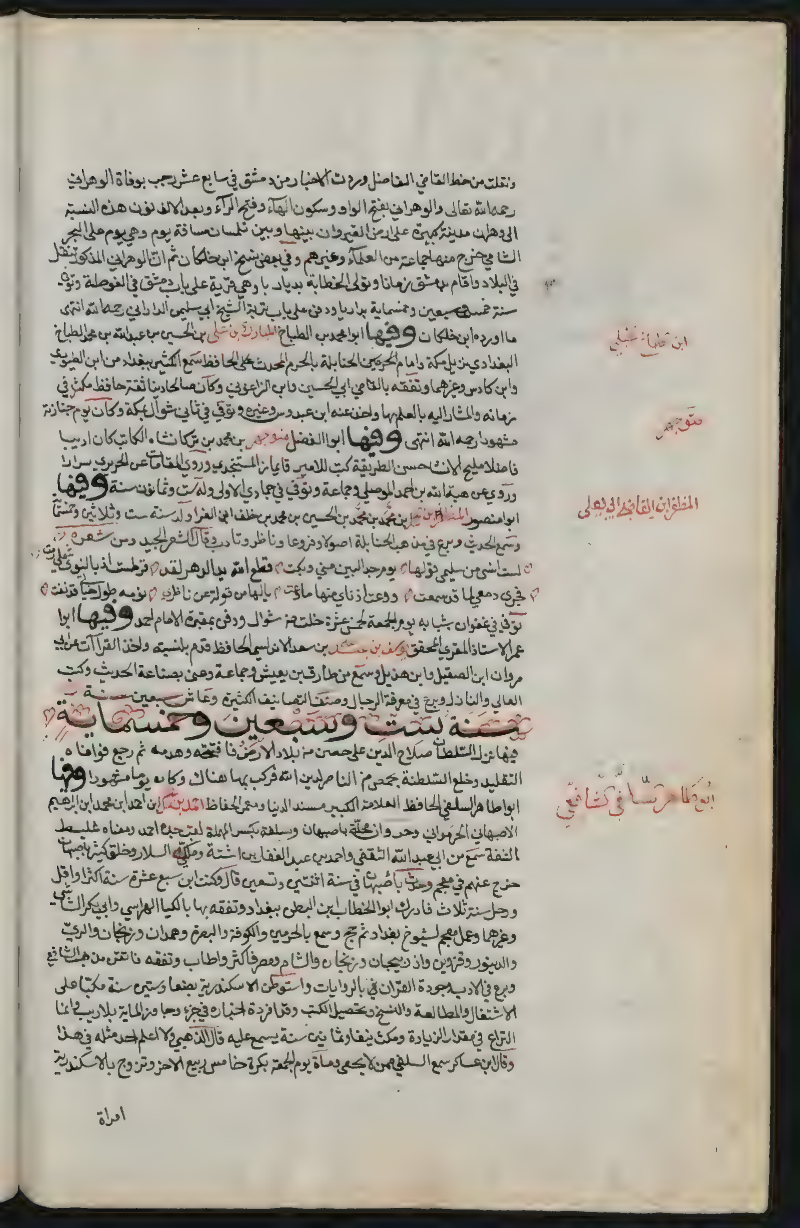 ونقلت من خط القاضي الفاضل وردت الاخبار من دمشق في سابع عشر رجب بوفاة الوهراني
رحمه الله تعالى والوهراني بفتح الواو وسكون الهاء وفتح الراء وبعد الالف نون هذه النسبة
الى وهران مدينة كبيرة على ارض القيروان بينها وبين تلمسان مسافة يوم وهي يوم على البحر
الشامي خرج منها جماعة من العلماء وغيرهم وفي بعض نسخ ابن خلكان ثم ان الوهراني المذكور تنقل
في البلاد واقام بدمشق زمانا وتولى الخطابة بداريا وهي قرية على باب دمشق في الغوطة وتوفي
سنة خمس وسبعين وخمسماية بداريا ودفن على باب تربة الشيخ ابي سليمن الداراني رحمه الله انتهى
ما اورده ابن خلكان وفيها ابو محمد بن الطباخ المبارك بن علي بن الحسين بن عبد الله بن محمد الطباخ
البغدادي نزيل مكة وامام الحرمين الحنابلة بالحرم المحدث الحافظ سمع الكثير ببغداد من ابن الطيوري
وابن كادس وغيرهما وتفقه بالقاضي ابي الحسين وابن الزاغوني وكان صالحا دينا ثقة حافظ مكة في
زمانه والمشار اليه بالعلم بها واخذ عنه ابن عبدوس وغيره وتوفي في ثاني شوال بمكة وكان يوم جنازته
مشهودا رحمه الله انتهى وفيها ابو الفضل منوجهر بن محمد بن تركانشاه الكاتب كان اديبا
فاضلا مليح الانشا حسن الطريقة كتب للامير قايماز المستنجدي وروى المقامات عن الحريري مرارا
وروى عن هبة الله بن احمد الموصلي وجماعة وتوفي في جمادى الاولى وله ست وثمانون سنة وفيها
ابو منصور المظفر بن محمد بن محمد بن الحسين بن محمد بن خلف ابن الفرا ولد سنة ست وثلاثين وخمسماية
وسمع الحديث وبرع في مذهب الحنابلة اصولا وفروعا وناظر وتادب وقال الشعر الجيد ومن شعره
لست انسى من سليمى قولها يوم جد البين مني وبكت قطع الله يد الدهر لقد
فجرى دمعي لما قد سمعت
توفي في عنفوان شبابه يوم الجمعة لخمس عشرة خلت من شوال ودفن بمقبرة الامام احمد وفيها ابو
عمر الاستاذ المقري المحقق يوسف بن عبد الله بن سعد الاندلسي الحافظ قدم بلنسية واخذ القراات عن ابي
مروان ابن الصقيل وابن هذيل وسمع من طارق بن يعيش وجماعة وعني بصناعة الحديث وكتب
العالي والنازل وبرع في معرفة الرجال وصنف التصانيف الكثيرة وعاش سبعين سنة
سنة ست وسبعين وخمسماية
فيها نزل السلطان صلاح الدين على حصن من بلاد الارمن فافتتحه وهدمه ثم رجع فوافاه
التقليد وخلع السلطنة بحمص من الناصر لدين الله فركب بها هناك وكان يوما مشهودا وفيها
ابو طاهر السلفي الحافظ العلامة الكبير مسند الدنيا ومعمر الحفاظ احمد بن محمد بن احمد ابن محمد ابن ابراهيم
الاصبهاني الجرواني وجروان محلة باصبهان وسلفة بكسر المهملة لقب جده احمد ومعناه غليظ
الشفة سمع من ابي عبد الله الثقفي واحمد بن عبد الغفار بن اشتة ومكي السلار وخلق كثير باصبهان
خرج عنهم في معجم وحدث باصبهان في سنة اثنتين وتسعين قال وكنت ابن سبع عشرة سنة اكثر او اقل
ورحل سنة ثلاث فادرك ابو الخطاب ابن البطر ببغداد وتفقه بها بالكيا الهراسي وابي بكر الشاشي
وغيرهما وعمل معجم لشيوخ بغداد ثم حج وسمع بالحرمين والكوفة والبصرة وهمدان وزنجان والري
والدينور وقزوين واذربيجان وزنجان والشام ومصر فاكثر واطاب وتفقه فاتقن مذهب الشافعي
وبرع في الادب وجودة القران في بالروايات واستوطن الاسكندرية بضعا وستين سنة مكبا على
الاشتغال والمطالعة والنسخ وتحصيل الكتب وقد افردت اخباره في جزء وجاوز الماية بلا ريب وانما
النزاع في مقدار الزيادة ومكث نيفا وثمانين سنة يسمع عليه قال الذهبي ولا اعلم احد مثله في هذا
وقال ابن عساكر سمع السلفي ممن لا يحصى ومات يوم الجمعة بكرة خامس ربيع الاخر وتزوج بالاسكندرية
امراة
منوجهر
المظفر ابن القاضي ابي يعلى
ابو طاهر السلفي الشافعي